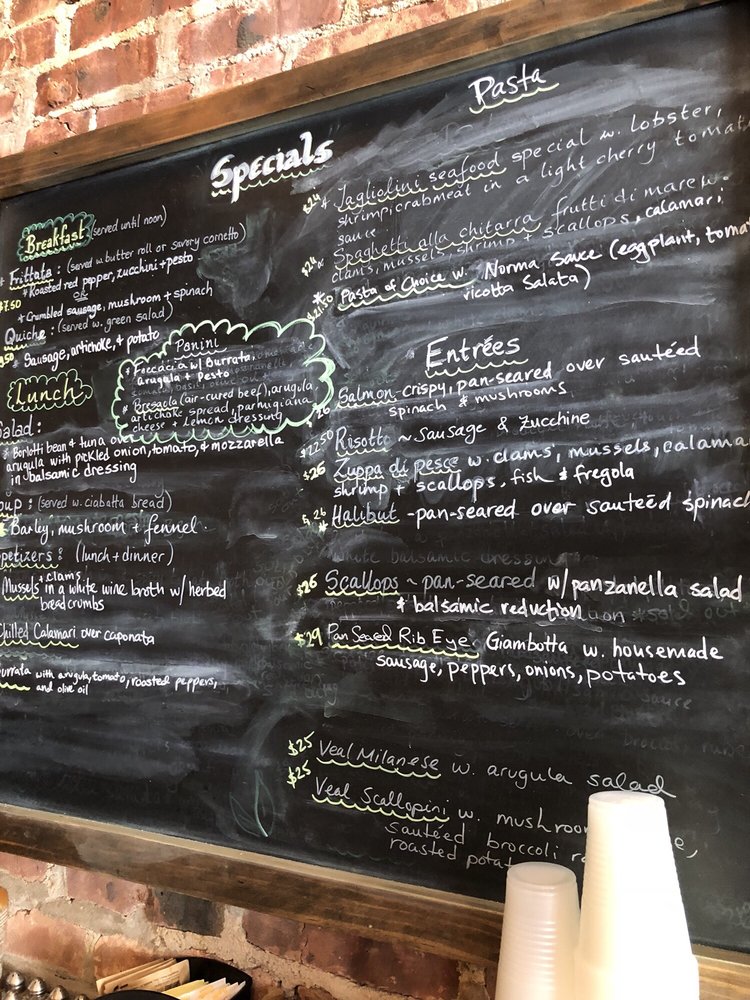 Specials
Breakfast (served until noon)
* Frittata: (served w. butter roll or savory cornetto)
* Roasted red pepper, zucchini + pesto
or
$7.50
* Crumbled sausage, mushroom + spinach
Quiche: (served w. green salad)
* Sausage, artichoke, & potato
Lunch
Panini
* Foccacia w/ Burrata,
arugula + Pesto
* Bresaola (air-cured beef), arugula
artichoke spread, parmigiana
cheese + Lemon dressing
alad:
* Borlotti bean & tuna over
arugula with pickled onion, tomato, & mozzarella
in balsamic dressing
oup: (served w. ciabatta bread)
* Barley, mushroom + fennel.
petizers: (lunch + dinner)
Mussels + clams
in a white wine broth w/ herbed
breadcrumbs
Chilled Calamari over caponata
urrata with arugula, tomato, roasted peppers,
and olive oil
Pasta
$24 * Tagliolini seafood special w. lobster,
shrimp, crabmeat in a light cherry tomat
sauce
$24 * Spaghetti alla chitarra frutti di mare w.
clams, mussels, shrimp + scallops, calamari
$21.50 * Pasta of Choice w. Norma Sauce (eggplant, toma
ricotta Salata)
Entrées
26 Salmon - crispy, pan-seared over sautéed
spinach & mushrooms
$22.50 Risotto ~ Sausage & Zucchine
$26 Zuppa di pesce w. clams, mussels, calama
shrimp + scallops, fish & fregola
$26 * Halibut - pan-seared over sauteēd spinac
$26 Scallops ~ pan-seared w/panzanella salad
& balsamic reduction
$29 Pan Seared Rib Eye. Giambotta w. housemade
sausage, peppers, onions, potatoes
$25 Veal Milanese w. arugula salad
$25 Veal Scallopini w. mushroo
sautéed broccoli
roasted potat